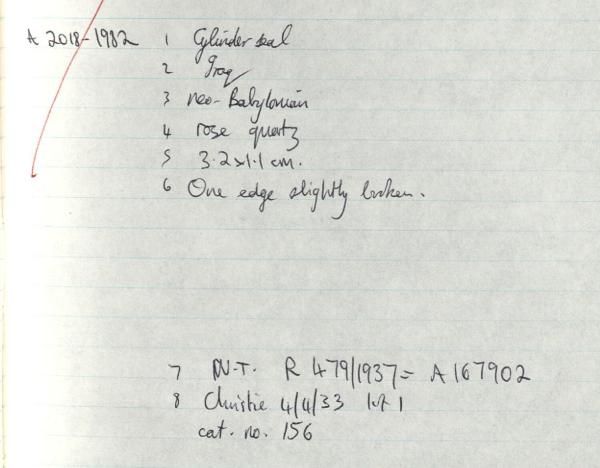 A 2018-1982 1 Cylinder seal
2 Iraq
3 neo-Babylonian
4 rose quartz
5 3.2x1.1 cm.
6 One edge slightly broken.
7 N.T. R 479/1937 = A167902
8 Christie 4/4/33 lot 1
cat. no. 156